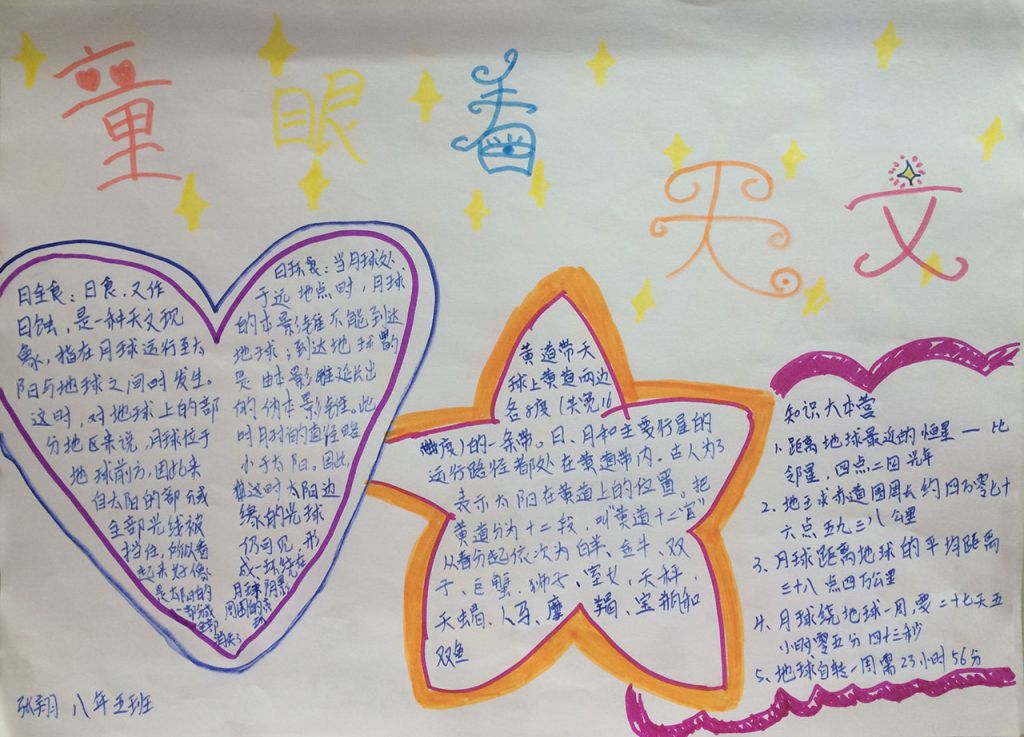 童眼看天文
日全食：日食，又作
日蚀，是一种天文现
象，指在月球运行至太
阳与地球之间时发生。
这时，对地球上的部
分地区来说，月球位于
地球前方，因此来
自太阳的部分或
全部光线被
挡住，所以看
起来好像
是太阳的
一部分或
全部
消失了
日环食：当月球处
于远地点时，月球
的本影锥不能到达
地球；到达地球的
是由本影锥延长出
的伪本影锥。此
时月球的直径略
小于太阳。因此，
这时太阳边
缘的光球
仍可见，形
成一环绕在
月球阴影
周围的亮
环
黄道带天
球上黄道两边
各8度（共宽16
度）的一条带。日、月和主要行星的
运行路径都处在黄道带内。古人为了
表示太阳在黄道上的位置。把
黄道分为十二段，叫“黄道十二宫”
从春分起依次为白羊、金牛、双
子、巨蟹、狮子、室女、天秤、
天蝎、人马、摩羯、宝瓶和
双鱼
知识大本营
1.距离地球最近的恒星——比
邻星，四点二四光年
2.地球赤道圆周长约四万零七十
六点五九三八公里
3.月球距离地球的平均距离
三十八点四万公里
4.月球绕地球一周要二十七天五
小时零五分四十三秒
5.地球自转一周需23小时56分
张翔 八年五班